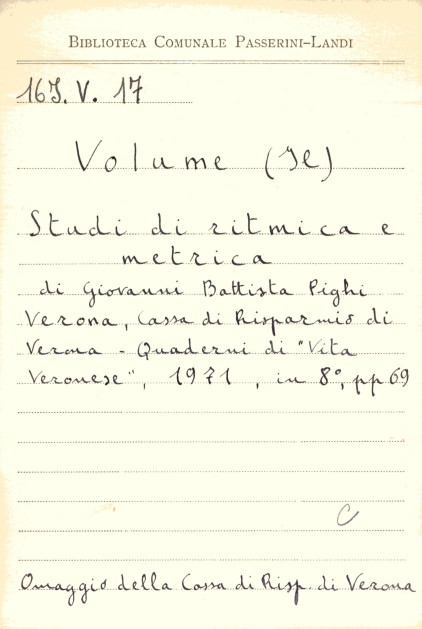 BIBLIOTECA COMUNALE PASSERINI-LANDI
16J. V. 17
Volume (Il)
Studi di ritmica e
metrica
di Giovanni Battista Pighi
Verona, Cassa di Risparmio di
Verona - Quaderni di "Vita
Veronese", 1971, in 8°, pp 69
C
Omaggio della Cassa di Risp. di Verona